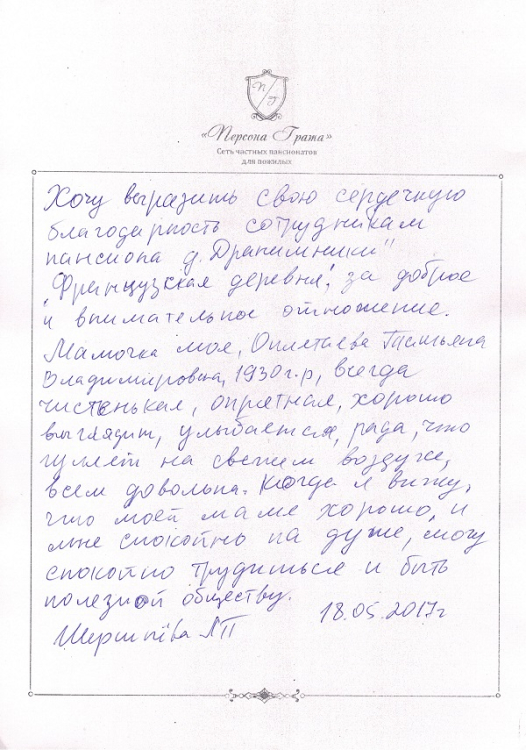 П Г
«Персона Гража»
Сеть частных пансионатов
для пожилых
Хочу выразить свою сердечную
благодарность сотрудникам
пансиона д. Дракинники"
"Французская деревня", за доброе
и внимательное отношение.
Мамочка моя, Оплетаева Татьяна
Владимировна, 1930 г.р, всегда
чистенькая, опрятная, хорошо
выглядит, улыбается, рада, что
гуляет на свежем воздухе,
всем довольна. Когда я вижу,
что моей маме хорошо, и
мне спокойно на душе, могу
спокойно трудиться и быть
полезной обществу.
18.05.2017г
ЛП